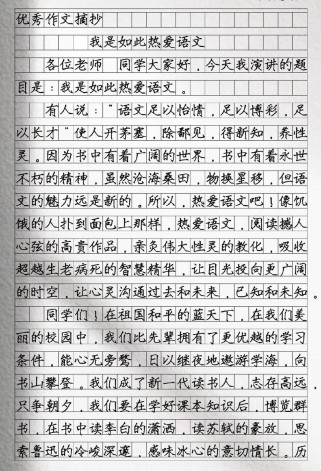 优秀作文摘抄
我是如此热爱语文
各位老师 同学大家好，今天我演讲的题
目是：我是如此热爱语文。
有人说：“语文足以怡情，足以博彩，足
以长才”使人开茅塞，除鄙见，得新知，养性
灵。因为书中有着广阔的世界，书中有着永世
不朽的精神，虽然沧海桑田，物换星移，但语
文的魅力远是新的。所以，热爱语文吧！像饥
饿的人扑到面包上那样，热爱语文，阅读撼人
心弦的高贵作品，亲炙伟大性灵的教化，吸收
超越生老病死的智慧精华，让目光投向更广阔
的时空，让心灵沟通过去和未来，已知和未知。
同学们！在祖国和平的蓝天下，在我们美
丽的校园中，我们比先辈拥有了更优越的学习
条件，能心无旁骛，日以继夜地遨游学海，向
书山攀登。我们成了新一代读书人，志存高远，
只争朝夕，我们要在学好课本知识后，博览群
书，在书中读李白的潇洒，读苏轼的豪放，思
索鲁迅的冷峻深邃，感味冰心的意切情长。历